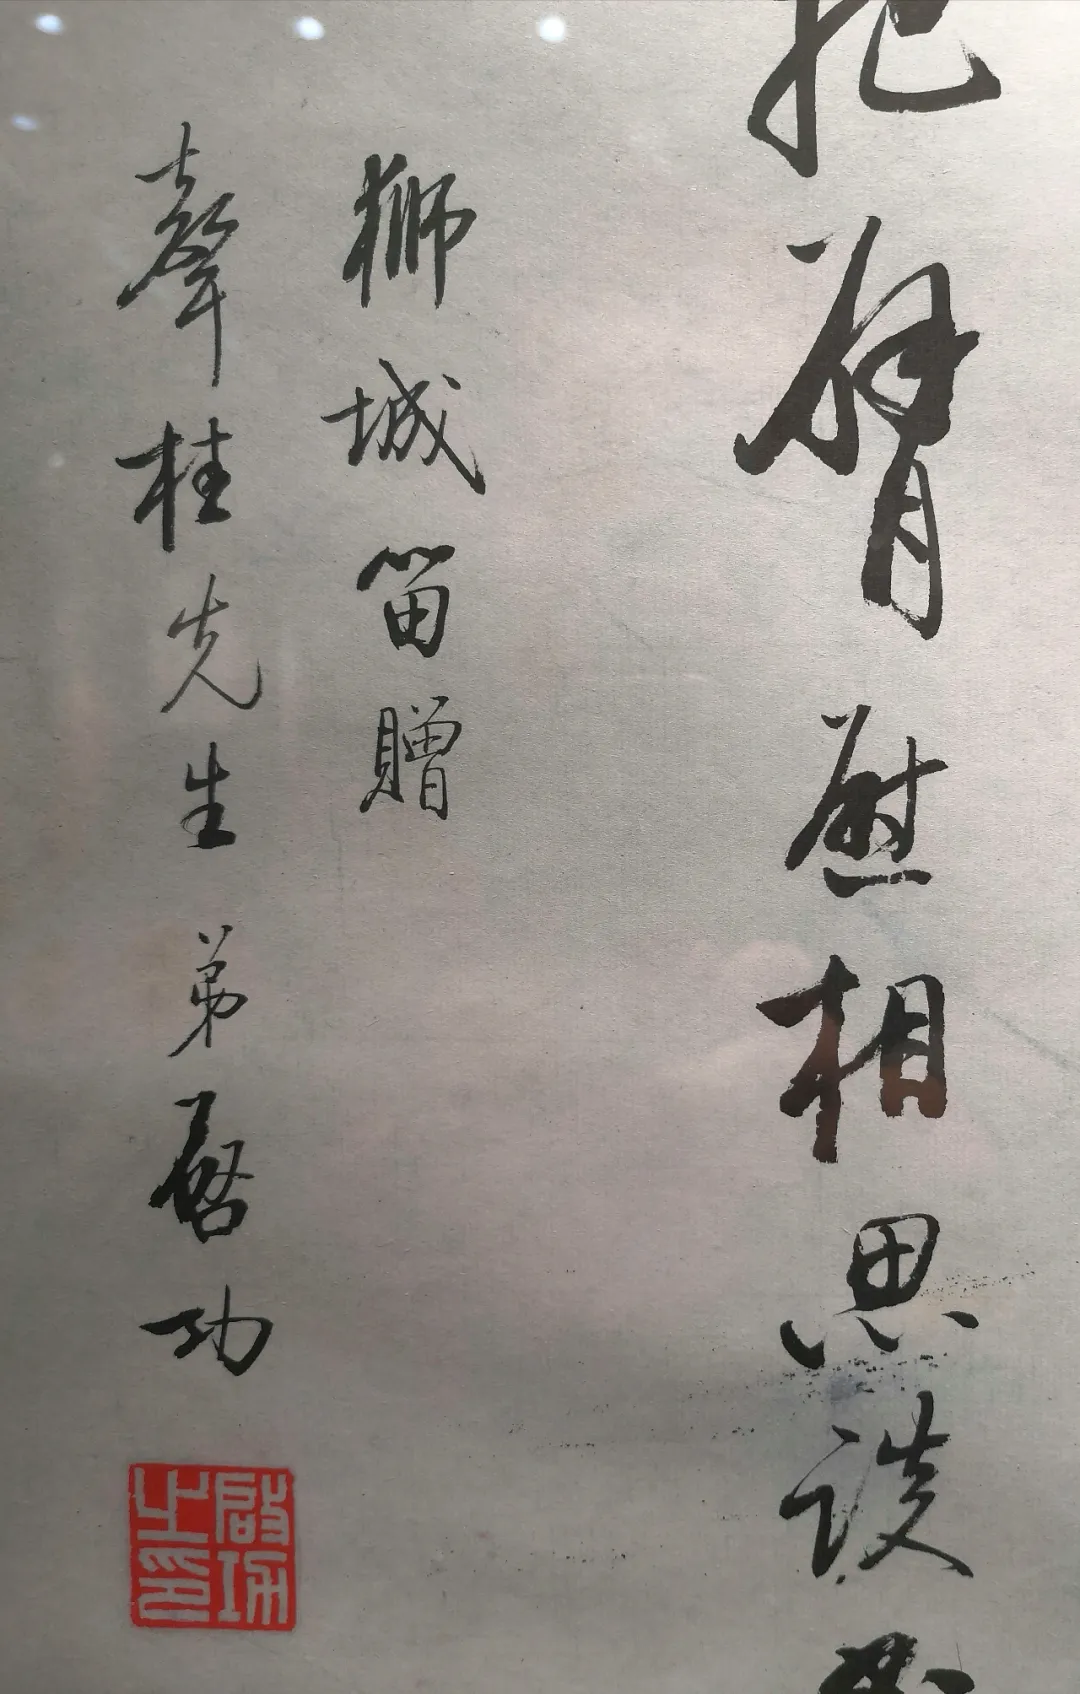 把臂慰相思談
獅城留贈
聲桂先生 弟啓功
啟功之印